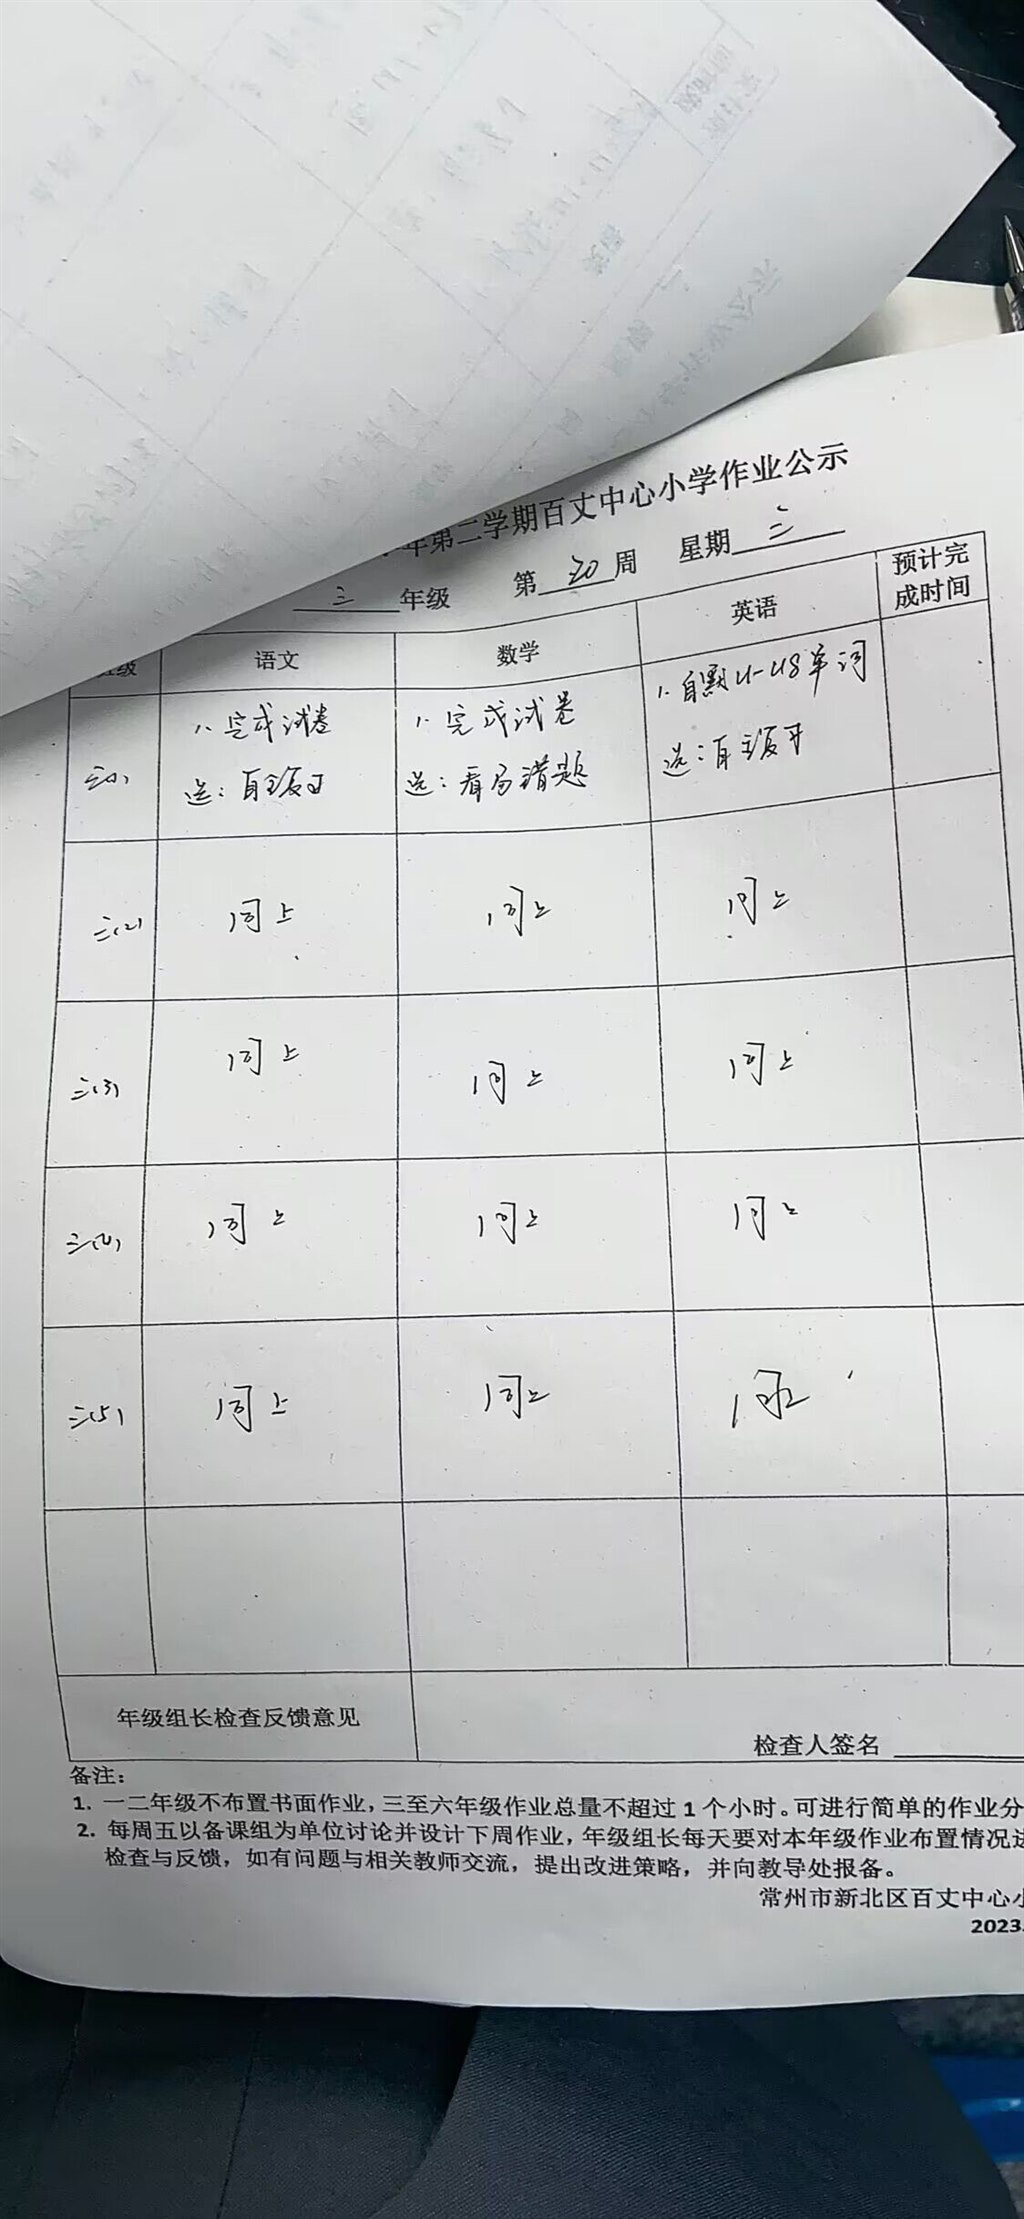 年第二学期百丈中心小学作业公示
三 年级 第 20 周 星期 三
级 语文 数学 英语 预计完成时间
三(1) 1. 完成试卷 1. 完成试卷 1. 自默U1-U8单词
选：自主复习 选：看易错题 选：自主复习
三(2) 同上 同上 同上
三(3) 同上 同上 同上
三(4) 同上 同上 同上
三(5) 同上 同上 同上
年级组长检查反馈意见
检查人签名
备注：
1. 一二年级不布置书面作业，三至六年级作业总量不超过 1 个小时。可进行简单的作业分
2. 每周五以备课组为单位讨论并设计下周作业，年级组长每天要对本年级作业布置情况进
检查与反馈，如有问题与相关教师交流，提出改进策略，并向教导处报备。
常州市新北区百丈中心小
2023.